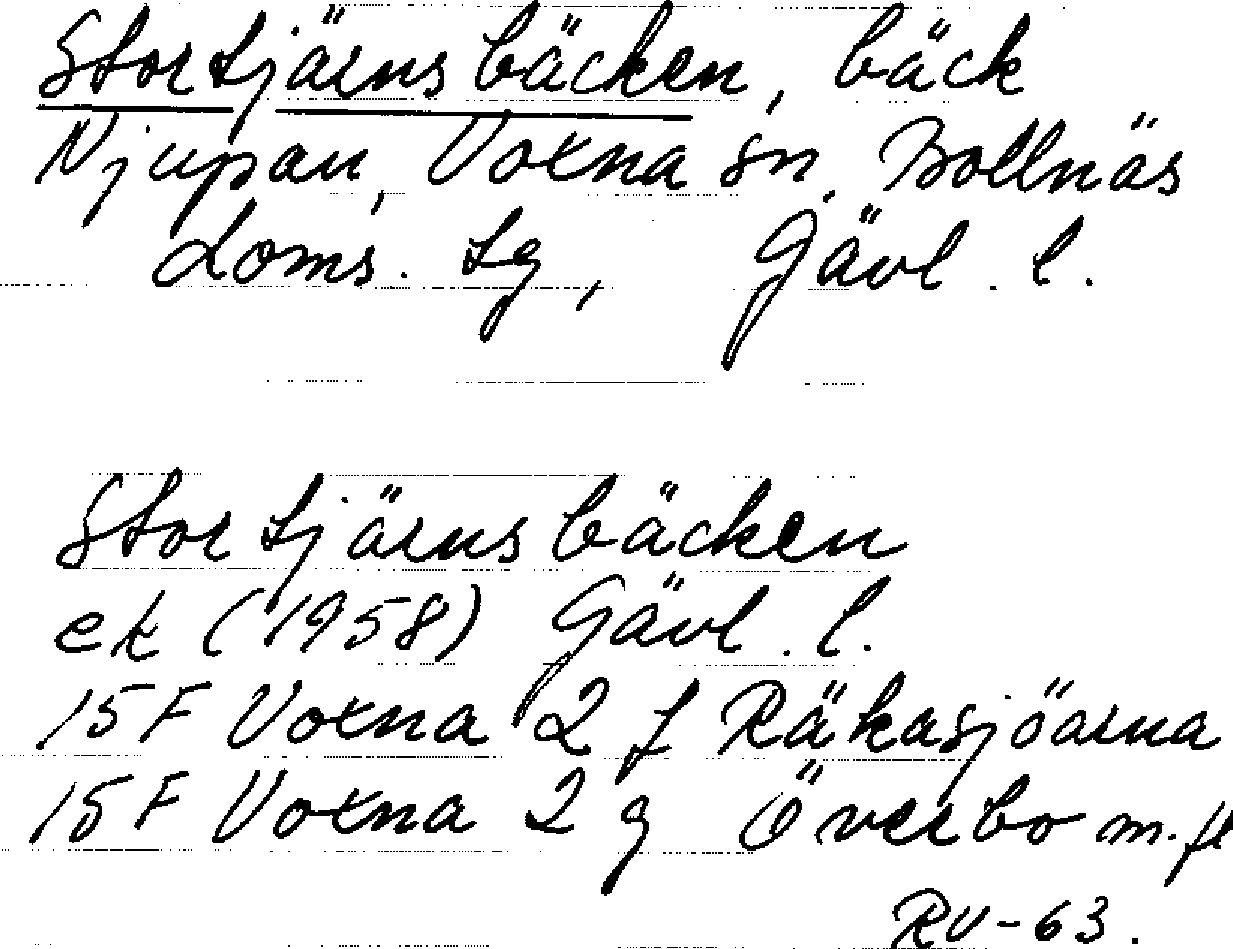 Stortjärnsbäcken, bäck
Njupan, Voxna sn, Bollnäs
doms. lg, Gävl. l.
Stortjärnsbäcken
ek (1958) Gävl. l.
15F Voxna 2 f Räkasjöarna
15F Voxna 2 g Överbo m. fl
RV-63.